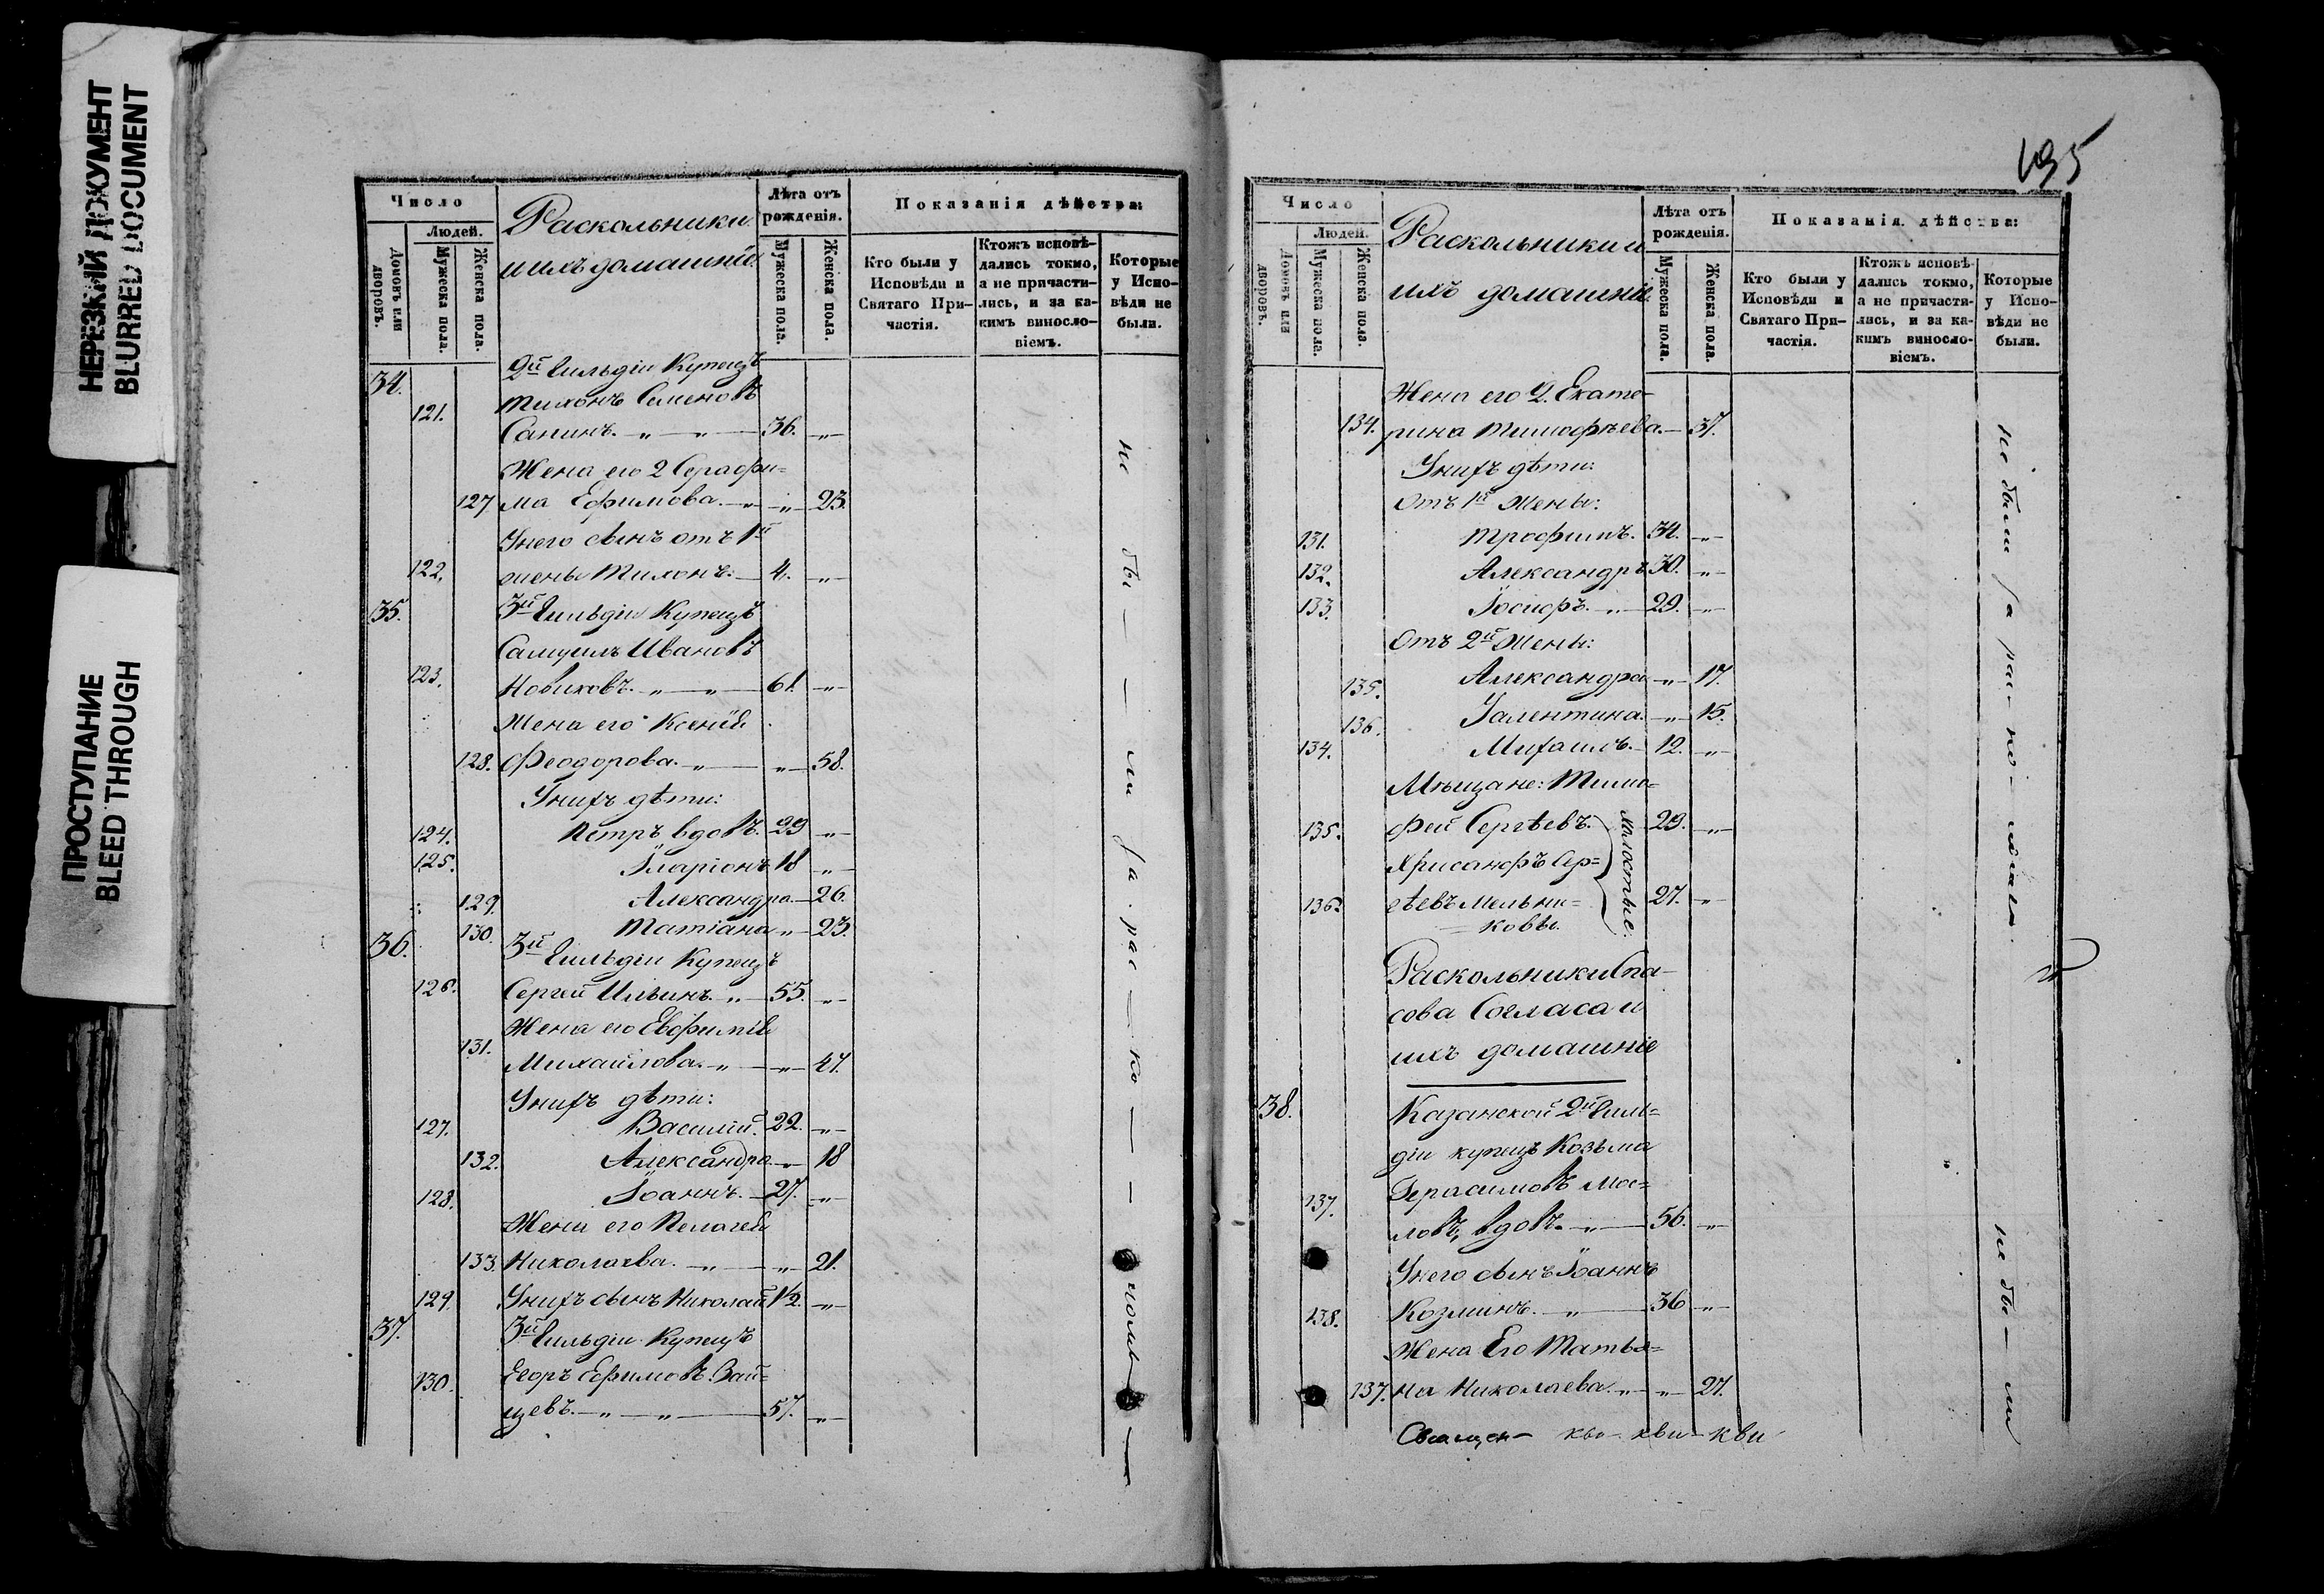 НЕРЕЗКИЙ ДОКУМЕНТ
BLURRED DOCUMENT
ПРОСТУПАНИЕ
BLEED THROUGH
Число
Людей.
Домовъ или дворовъ.
Мужеска пола.
Женска пола.
Раскольники
и ихъ домашніе.
Лѣта отъ рожденія.
Мужеска пола.
Женска пола.
Показанія дѣйства:
Кто были у Исповѣди и Святаго Причастія.
Ктожъ исповѣдались токмо, а не причастились, и за какимъ винословіемъ.
Которые у Исповѣди не были.
34. 2й Гильдіи Купецъ
121. Тихонъ Семеновъ
Санинъ. 36.
Жена его 2 Серафи=
127 ма Ефимова. 23.
У него сынъ отъ 1й
122. жены Тихонъ. 4.
35. 3й Гильдіи Купецъ
Самуилъ Ивановъ
123. Новиковъ. 61.
Жена его Ксенія
128. Феодорова. 58.
У нихъ дѣти:
124. Петръ вдовъ. 29
125. Іларіонъ 18
129. Александра 26.
130. Татіана 23.
36. 3й Гильдіи Купецъ
126. Сергей Ильинъ. 55.
Жена его Евфимія
131. Михайлова. 47.
У нихъ дѣти:
127. Василій. 22.
132. Александра 18
128. Іоаннъ. 27.
Жена его Пелагея
133. Николаева. 21.
129. У нихъ сынъ Николай 1½.
37. 3й Гильдіи Купецъ
130. Егоръ Ефимовъ Зай=
цевъ. 57.
не бы ли за рас ко
195
Число
Людей.
Домовъ или дворовъ.
Мужеска пола.
Женска пола.
Раскольники и
ихъ домашніе.
Лѣта отъ рожденія.
Мужеска пола.
Женска пола.
Показанія дѣйства:
Кто были у Исповѣди и Святаго Причастія.
Ктожъ исповѣдались токмо, а не причастились, и за какимъ винословіемъ.
Которые у Исповѣди не были.
Жена его 2. Екате-
134. рина Тимофѣева. 37.
У нихъ дѣти:
Отъ 1й Жены:
131. Трофимъ. 34.
132. Александръ 30.
133. Іосифъ. 29.
Отъ 2й Жены:
135. Александра 17.
136. Валентина. 15.
134. Михаилъ. 12.
Мѣщане: Тимо=
135. фей Сергѣевъ. 29.
Хрисанфъ Сер=
136. гѣевъ Мельни= 27.
ковы.
холостые.
Раскольники Спа-
сова Согласа и
ихъ домашніе
38. Казанской 2й Гиль=
діи купецъ Козьма
137. Герасимовъ Мас=
ловъ, вдовъ. 56.
У него сынъ Іоаннъ
138. Козминъ. 36
Жена Его Татья=
137. на Николаева. 27.
не были за рас
не бы ли
Священ-